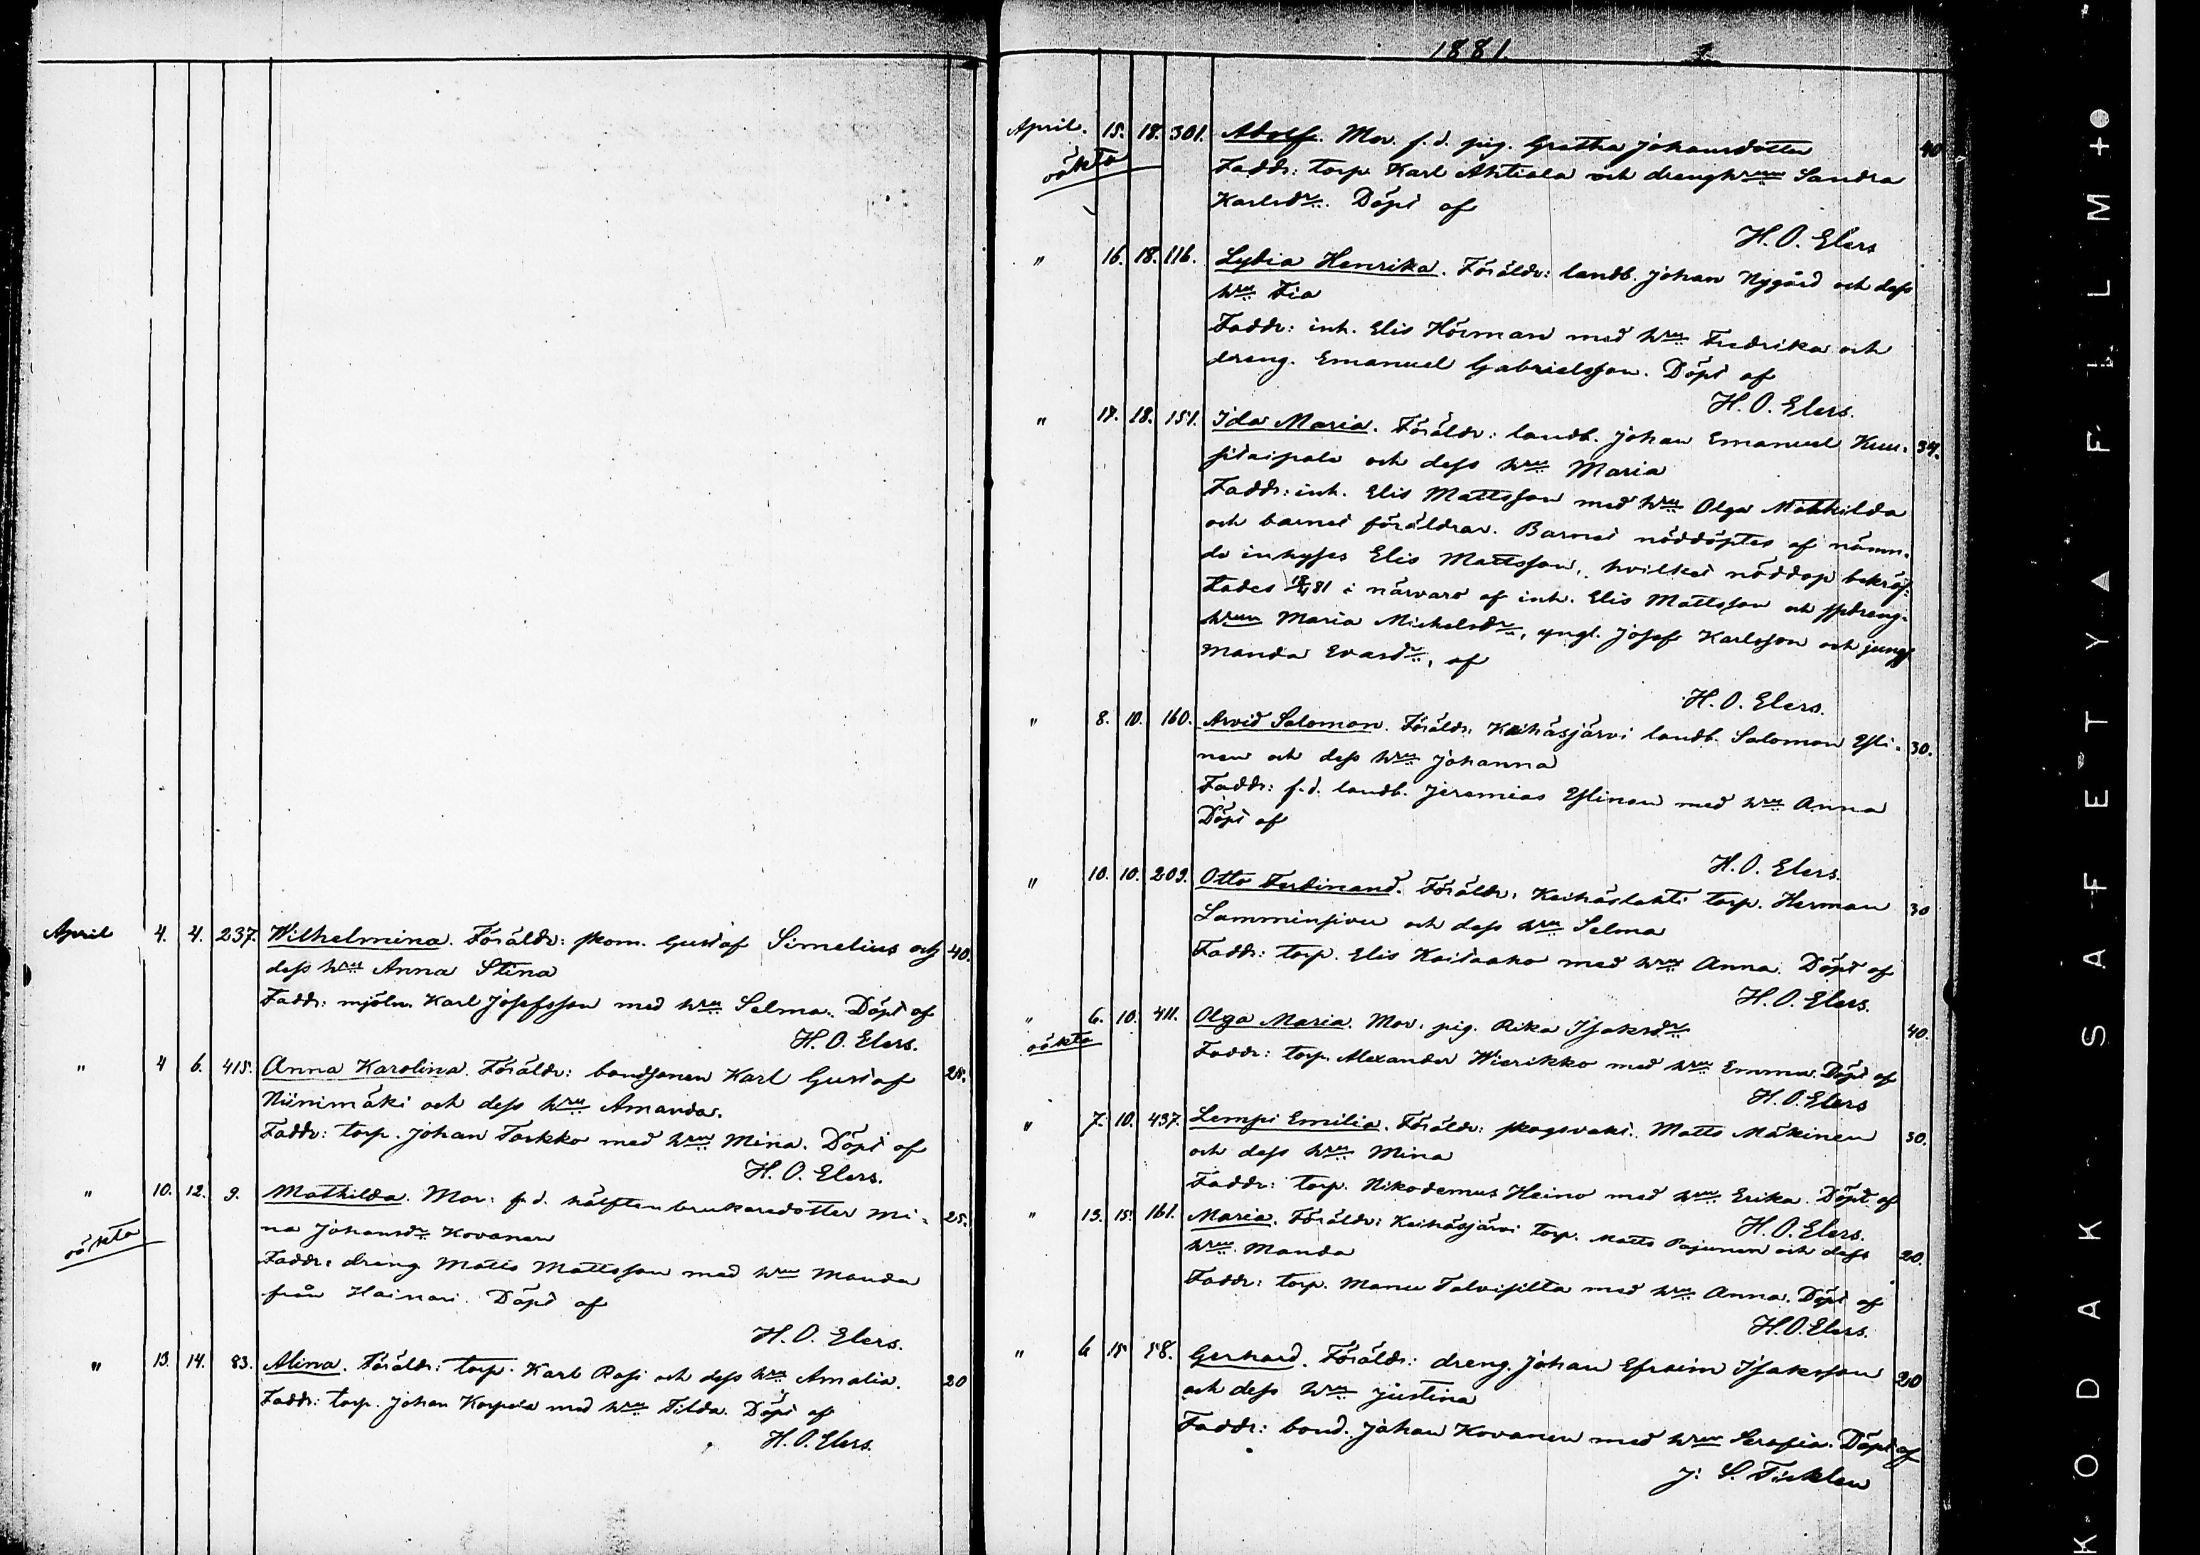 April 4. 4. 237. Wilhelmina. Föräldr: skom. Gustaf Simelius och 40.
dess hru Anna Stina
Faddr: mjöln. Karl Josefsson med hru Selma. Döpt af
H. O. Elers.
" 4 6. 415. Anna Karolina. Föräldr: bondsonen Karl Gustaf 25.
Niinimäki och dess hru Amanda.
Faddr: torp. Johan Torkko med hru Mina. Döpt af
H. O. Elers.
" 10. 12. 9. Mathilda. Mor: f.d. hälftenbrukaredotter Mi- 25.
oäkta na Johansdr Kovanen
Faddr: dreng Matts Mattsson med hru Manda
från Hainari. Döpt af
H. O. Elers.
" 13. 14. 83. Alina. Föräldr: torp. Karl Rosi och dess hru Amalia. 20
Faddr: torp. Johan Korpela med hru Tilda. Döpt af
H. O. Elers.
1881.
April. 15. 18. 301. Adolf. Mor. f.d. pig. Gretha Johansdotter 40
oäkta Faddr: torp. Karl Ahtiala och drenghrun Sandra
Karlsdr. Döpt af
H. O. Elers
" 16. 18. 116. Lydia Henrika. Föräldr: landb. Johan Nygård och dess
hru Fia
Faddr: inh. Elis Hörman med hru Fredrika och
dreng. Emanuel Gabrielsson. Döpt af
H. O. Elers.
" 17. 18. 151. Ida Maria. Föräldr: landb. Johan Emanuel Kuu- 34.
sitaipale och dess hru Maria
Faddr: inh. Elis Mattsson med hru Olga Mathilda
och barnets föräldrar. Barnet nöddöptes af nämn-
de inhyses Elis Mattsson, hvilket nöddop bekräf-
tades 18/4 81 i närvaro af inh. Elis Mattsson och spdreng-
hrun Maria Mickelsdr, yngl. Josef Karlsson och jungf
Manda Evasdr, af
H. O. Elers.
" 8. 10. 160. Arvid Salomon. Föräldr: Keihäsjärvi landb. Salomon Yli- 30.
nen och dess hru Johanna
Faddr: f.d. landb. Jeremias Ylinen med hru Anna
Döpt af
H. O. Elers.
" 10. 10. 209. Otto Ferdinand. Föräldr: Keihäslahti torp. Herman 30
Lamminsivu och dess hru Selma
Faddr: torp. Elis Koitaaho med hru Anna. Döpt af
H. O. Elers.
" 6. 10. 411. Olga Maria. Mor. pig. Rika Isaksdr 40.
oäkta Faddr: torp. Alexander Wierikko med hru Emma. Döpt af
H. O. Elers
" 7. 10. 437. Lempi Emilia. Föräldr: skogsvakt. Matts Mäkinen 30.
och dess hru Mina
Faddr: torp. Nikodemus Heino med hru Erika. Döpt af
H. O. Elers.
" 13. 15. 161. Maria. Föräldr: Keihäsjärvi torp. Matts Pajunen och dess 20.
hru Manda
Faddr: torp. Manu Talvisilta med hru Anna. Döpt af
H. O. Elers.
" 6 15 58. Gerhard. Föräldr: dreng. Johan Efraim Isaksson 20
och dess hru Justina
Faddr: bond. Johan Kovanen med hru Serafia. Döpt af
J. S.
KODAK SAFETY FILM